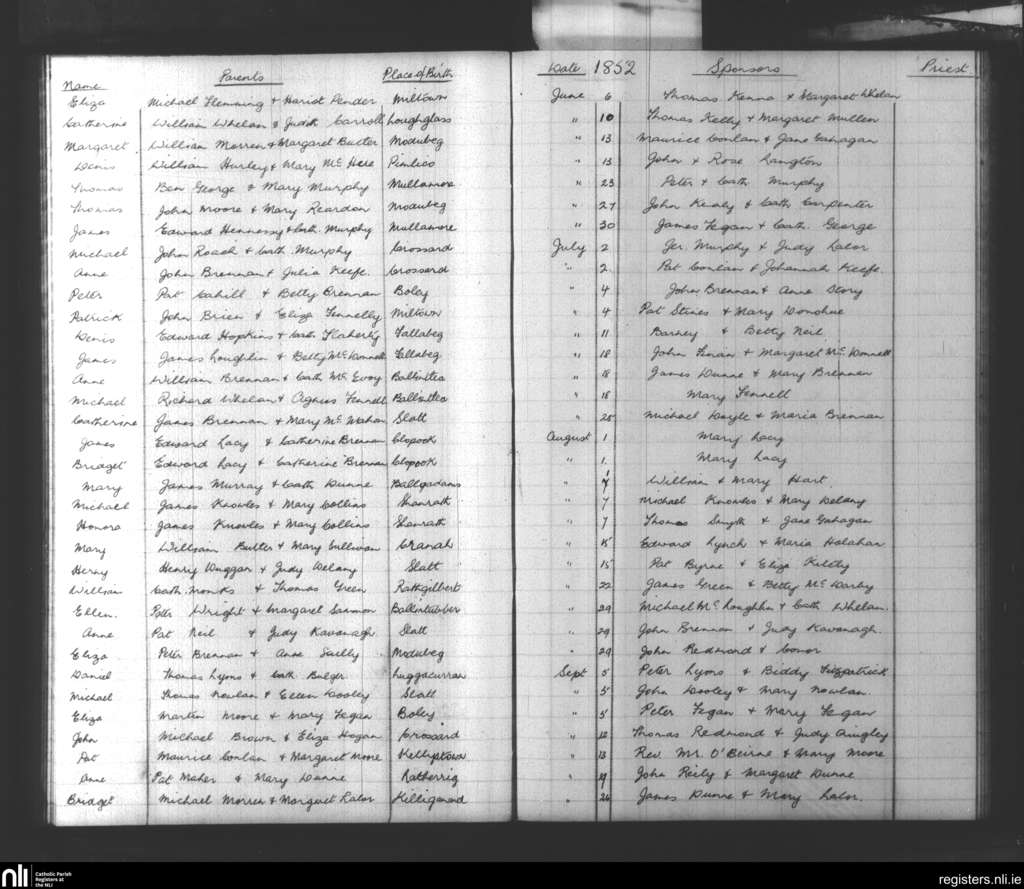 Name Parents Place of Birth Date 1852 Sponsors Priest
Eliza Michael Flemming & Hariot Pender Miltown June 6 Thomas Kenna & Margaret Whelan
Catherine William Whelan & Judith Carroll Loughglass " 10 Thomas Kelly & Margaret Mullen
Margaret William Morren & Margaret Butler Modubeg " 13 Maurice Conlan & Jane Gahagan
Denis William Hurley & Mary Mc Here Pimlico " 13 John & Rose Langton
Thomas Ben George & Mary Murphy Mullamore " 23 Peter & Cath Murphy
Thomas John Moore & Mary Reardon Modubeg " 27 John Kealy & Cath Carpenter
James Edward Hennessy & Cath. Murphy Mullamore " 30 James Fegan & Cath. George
Michael John Roach & Cath. Murphy Crossard July 2 Jer. Murphy & Judy Lalor
Anne John Brennan & Julia Keefe. Crossard " 2 Pat Conlan & Johannah Keefe.
Peter Pat Cahill & Betty Brennan Boley " 4 John Brennan & Anne Story
Patrick John Brien & Eliza Fennelly Miltown " 4 Pat Stines & Mary Donohue
Denis Edward Hopkins & Cath. Flaherty Fallabeg " 11 Barney & Betty Neil
James James Loughlin & Betty McDonnell Fallabeg " 18 John Finan & Margaret McDonnell
Anne William Brennan & Cath McEvoy Ballintlea " 18 James Dunne & Mary Brennan
Michael Richard Whelan & Agness Fennell Ballintlea " 18 Mary Fennell
Catherine James Brennan & Mary McMahon Slatt " 25 Michael Doyle & Maria Brennan
James Edward Lacy & Catherine Brennan Clopook August 1 Mary Lacy
Bridget Edward Lacy & Catherine Brennan Clopook " 1 Mary Lacy
Mary James Murray & Cath Dunne Ballgadams " 7 William & Mary Hart.
Michael James Knowles & Mary Collins Shanrath " 7 Michael Knowles & Mary Delany
Honora James Knowles & Mary Collins Shanrath " 7 Thomas Smyth & Jane Gahagan
Mary William Butler & Mary Sullivan Cranah " 15 Edward Lynch & Maria Holahan
Henry Henry Duggan & Judy Delany Slatt " 15 Pat Byrne & Eliza Kielty
William Cath. Monks & Thomas Green Rathgilbert " 22 James Green & Betty McDarby
Ellen. Peter Wright & Margaret Sammon Ballintubber " 29 Michael McLoughlin & Cath Whelan.
Anne Pat Neil & Judy Kavanagh. Slatt " 29 John Brennan & Judy Kavanagh.
Eliza Peter Brennan & Anne Modubeg " 29 John Redmond & Conor
Daniel Thomas Lyons & Cath Bulger Luggacurran Sept 5 Peter Lyons & Biddy Fitzpatrick
Michael Thomas Nowlan & Ellen Dooley Slatt " 5 John Dooley & Mary Nowlan.
Eliza Martin Moore & Mary Fegan Boley " 5 Peter Fegan & Mary Fegan
John Michael Brown & Eliza Hogan Crossard " 12 Thomas Redmond & Judy Quigley
Pat Maurice Conlan & Margaret Moore Kellystown " 13 Rev. Mr. O'Beirne & Mary Moore
Anne Pat Maher & Mary Danne Ratherrig " 19 John Reily & Margaret Dunne
Bridget Michael Morren & Margaret Lalor Killiganard " 26 James Dunne & Mary Lalor.
nli Catholic Parish Registers at the NLI registers.nli.ie